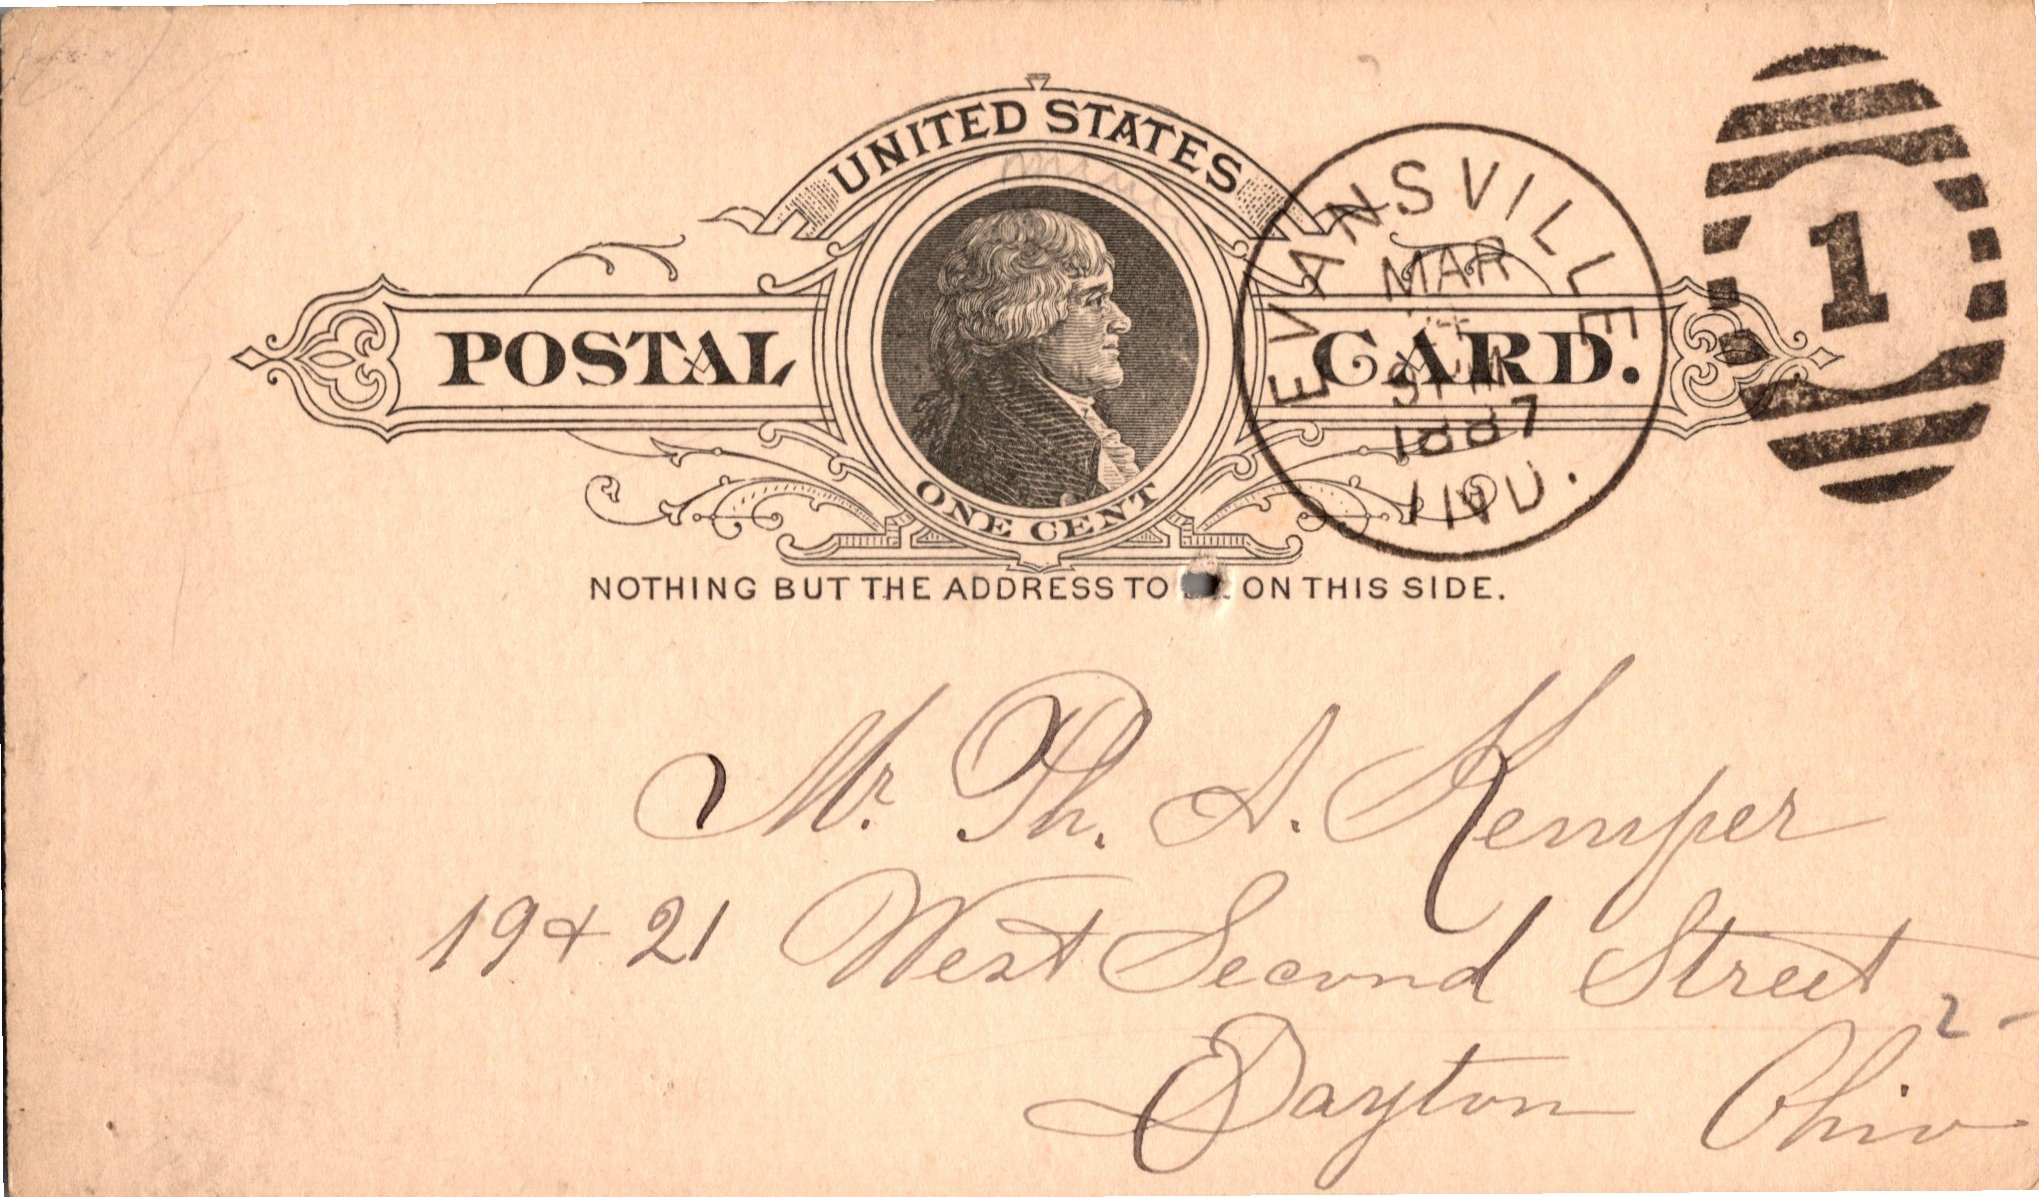 UNITED STATES
POSTAL CARD.
ONE CENT
EVANSVILLE
MAR
1887
IND.
1
NOTHING BUT THE ADDRESS TO ON THIS SIDE.
Mr. Th. A. Kemper
19 & 21 West Second Street
Dayton Ohio
2 -